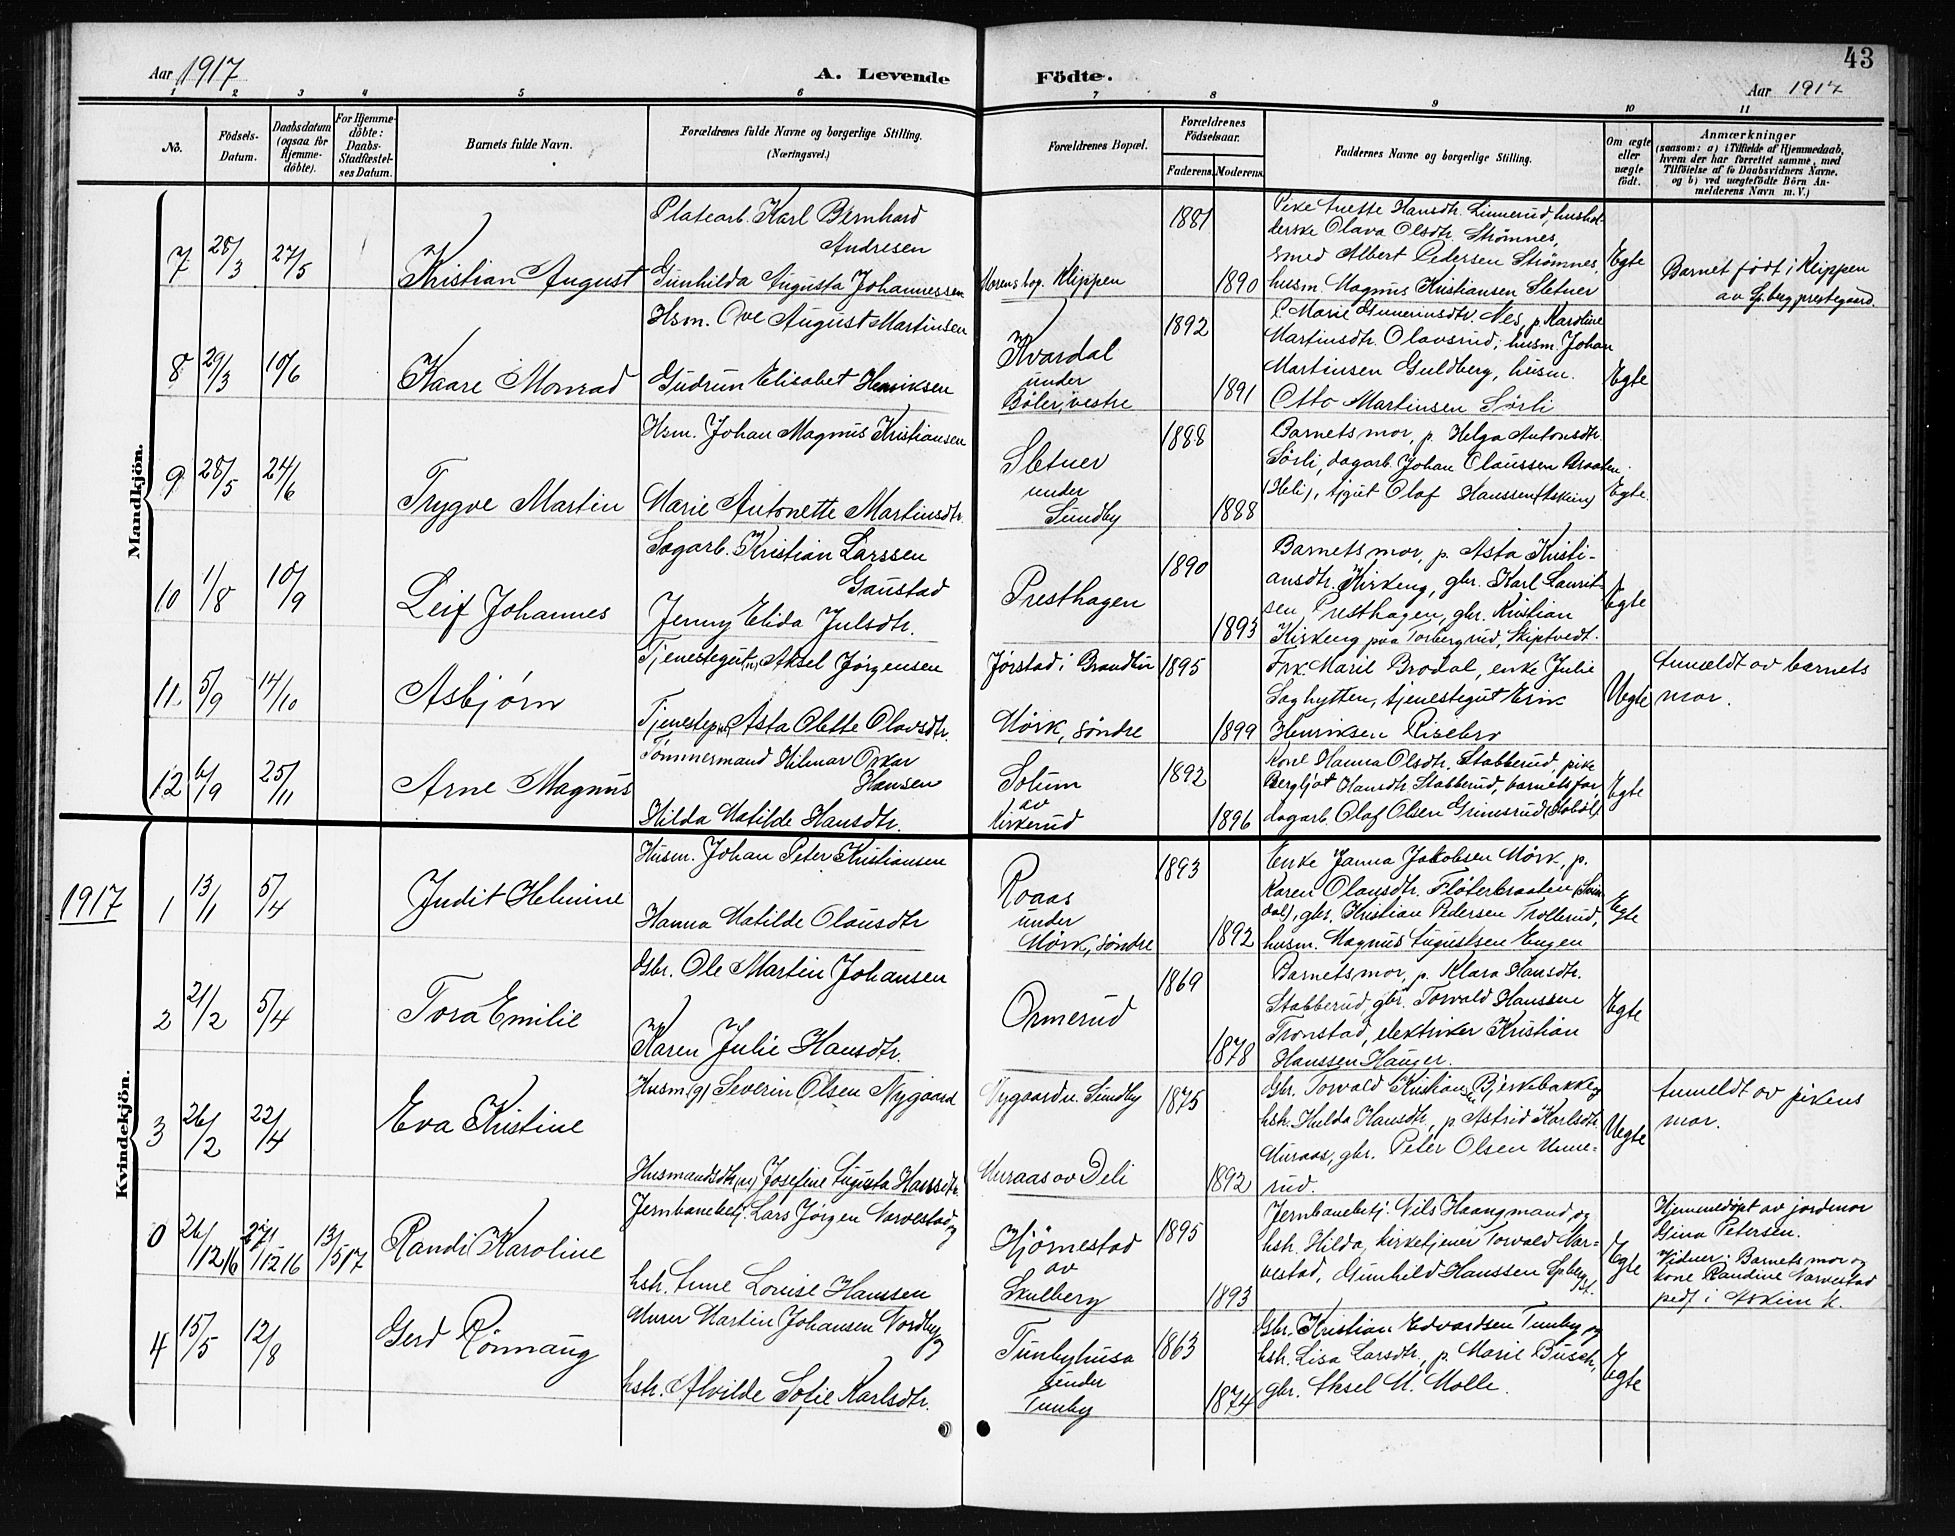 43
Aar 1917
A. Levende Födte.
Aar 1917
1 2 3 4 5 6 7 8 9 10 11
No.
Födsels-
Datum.
Daabsdatum
(ogsaa for
Hjemme-
döbte).
For Hjemme-
döbte:
Daabs-
Stadfæstel-
ses Datum.
Barnets fulde Navn.
Forældrenes fulde Navne og borgerlige Stilling.
(Næringsvei.)
Forældrenes Bopæl.
Forældrenes
Födselsaar.
Faderens. Moderens.
Faddernes Navne og borgerlige Stilling.
Om ægte
eller
uægte
födt.
Anmærkninger
(saasom: a) i Tilfælde af Hjemmedaab,
hvem der har forrettet samme, med
Tilföielse af to Daabsvidners Navne,
og b) ved uægtefödte Börn An-
melderens Navn m. V.)
Mandkjön.
7 28/3 27/5
Kristian August
Platearb. Karl Bernhard
Andresen
Gunhilda Augusta Johannessen
Morens bop. Klippen
1881
1890
Pike Anette Hansdtr. Linnerud, hushol-
derske Olava Olsdtr. Strømnes,
smed Albert Pedersen Strømnes,
husm. Magnus Kristiansen Sletner
Egte
Barnet født i Klippen
av Sp.berg prestegaard.
8 29/3 10/6
Kaare Monrad
Hsm. Ove August Martinsen
Gudrun Elisabet Henriksen
Kvardal
under
Bøler, vestre
1892
1891
Marie Gunerinsdtr. Nes, p. Karoline
Martinsdtr. Olavsrud, husm. Johan
Martinsen Guldberg, husm.
Otto Martinsen Sørli
Egte
9 28/5 24/6
Trygve Martin
Hsm. Johan Magnus Kristiansen
Marie Antonette Martinsdtr.
Sletner
under
Sundby
1888
1888
Barnets mor, p. Helga Antonsdtr.
Sørli, dagarb. Johan Olaussen Braaten
(Heli), tjgut Olaf Hanssen (Askim)
Egte
10 1/8 10/9
Leif Johannes
Sagarb. Kristian Larssen
Gaustad
Jenny Elida Julsdtr.
Presthagen
1890
1893
Barnets mor, p. Asta Kristi-
ansdtr. Kirkeng, gbr. Karl Laurit-
sen, Presthagen, gbr. Kristian
Kirkeng paa Torbergrud, Skiptvedt.
Egte
11 5/9 14/10
Asbjørn
Tjenestegut (u) Aksel Jørgensen
Tjenestep. (u) Asta Olette Olavsdtr.
Jørstad i Brandbu
Mørk, søndre
1895
1899
Frk. Marie Brodal, enke Julie
Saghytten, tjenestegut Erik
Henriksen Risebro
Uegte
Anmeldt av barnets
mor.
12 6/9 25/11
Arne Magnus
Tømmermand Hilmar Oskar
Hansen
Hilda Matilde Hansdtr.
Solum
av
Kirkerud
1892
1896
Kone Hanna Olsdtr. Stabberud, pike
Bergljot Hansdtr. Stabberud, barnets far,
dagarb. Olaf Olsen Grimsrud (Hobøl)
Egte
1917
Kvindekjön.
1 13/1 5/4
Judit Helmine
Husm. Johan Peter Kristiansen
Hanna Matilde Olausdtr
Roaas
under
Mørk, søndre
1893
1892
Enke Janna Jakobsen Mørk, p.
Karen Olausdtr. Fløterbraaten (Svin-
dal), gbr. Kristian Pedersen Trollerud,
husm. Magnus Augustsen Engen
Egte
2 21/2 5/4
Tora Emilie
Gbr. Ole Martin Johansen
Karen Julie Hansdtr.
Ormerud
1869
1878
Barnets mor, p. Klara Hansdtr.
Stabberud, gbr. Torvald Hanssen
Tronstad, elektriker Kristian
Hanssen Hauger.
Egte
3 26/2 22/4
Eva Kristine
Husm (g) Severin Olsen Nygaard
Husmandsdtr (u) Josefine Augusta Hansdtr.
Nygaard u. Sundby
Muraas av Deli
1875
1892
Gbr. Torvald Kristiansen Bjerkebakke og
hstr. Hulda Hansdtr, p. Astrid Karlsdtr.
Muraas, gbr. Peter Olsen Unne-
rud.
Uegte
Anmeldt av pikens
mor.
0 26/12 16 27/12 16 13/5 17
Randi Karoline
Jernbanebetj. Lars Jørgen Varvestad og
hstr. Anne Louise Hanssen
Hjørnestad
av
Skulberg
1895
1893
Jernbanebetj. Nils Haangmand og
hstr. Hilda, kirketjener Torvald Var-
vestad, Gunhild Hanssen Spberg st.
Egte
Hjemmedøpt av jordmor
Gina Petersen.
Vidner: Barnets mor og
kone Randine Varvestad
i Askim k.
4 15/5 12/8
Gerd Rønnaug
Murer Martin Johansen Nordby og
hstr. Alvilde Sofie Karlsdtr.
Tunbyhusa
under
Tunby
1863
1874
Gbr. Kristian Edvardsen Tunby og
hstr. Lisa Larsdtr, p. Marie Busch,
gbr. Aksel M. Molle.
Egte